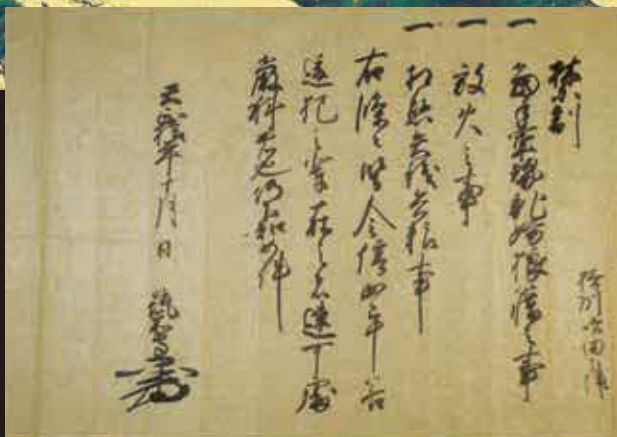 禁制　摂州吹田津
一　当手軍勢乱妨狼藉之事
一　放火之事
一　相懸矢銭兵粮事
右條々堅令停止畢若
違犯之輩在之者速可處
嚴科者也仍下知如件
天正 年十月　日　筑前守